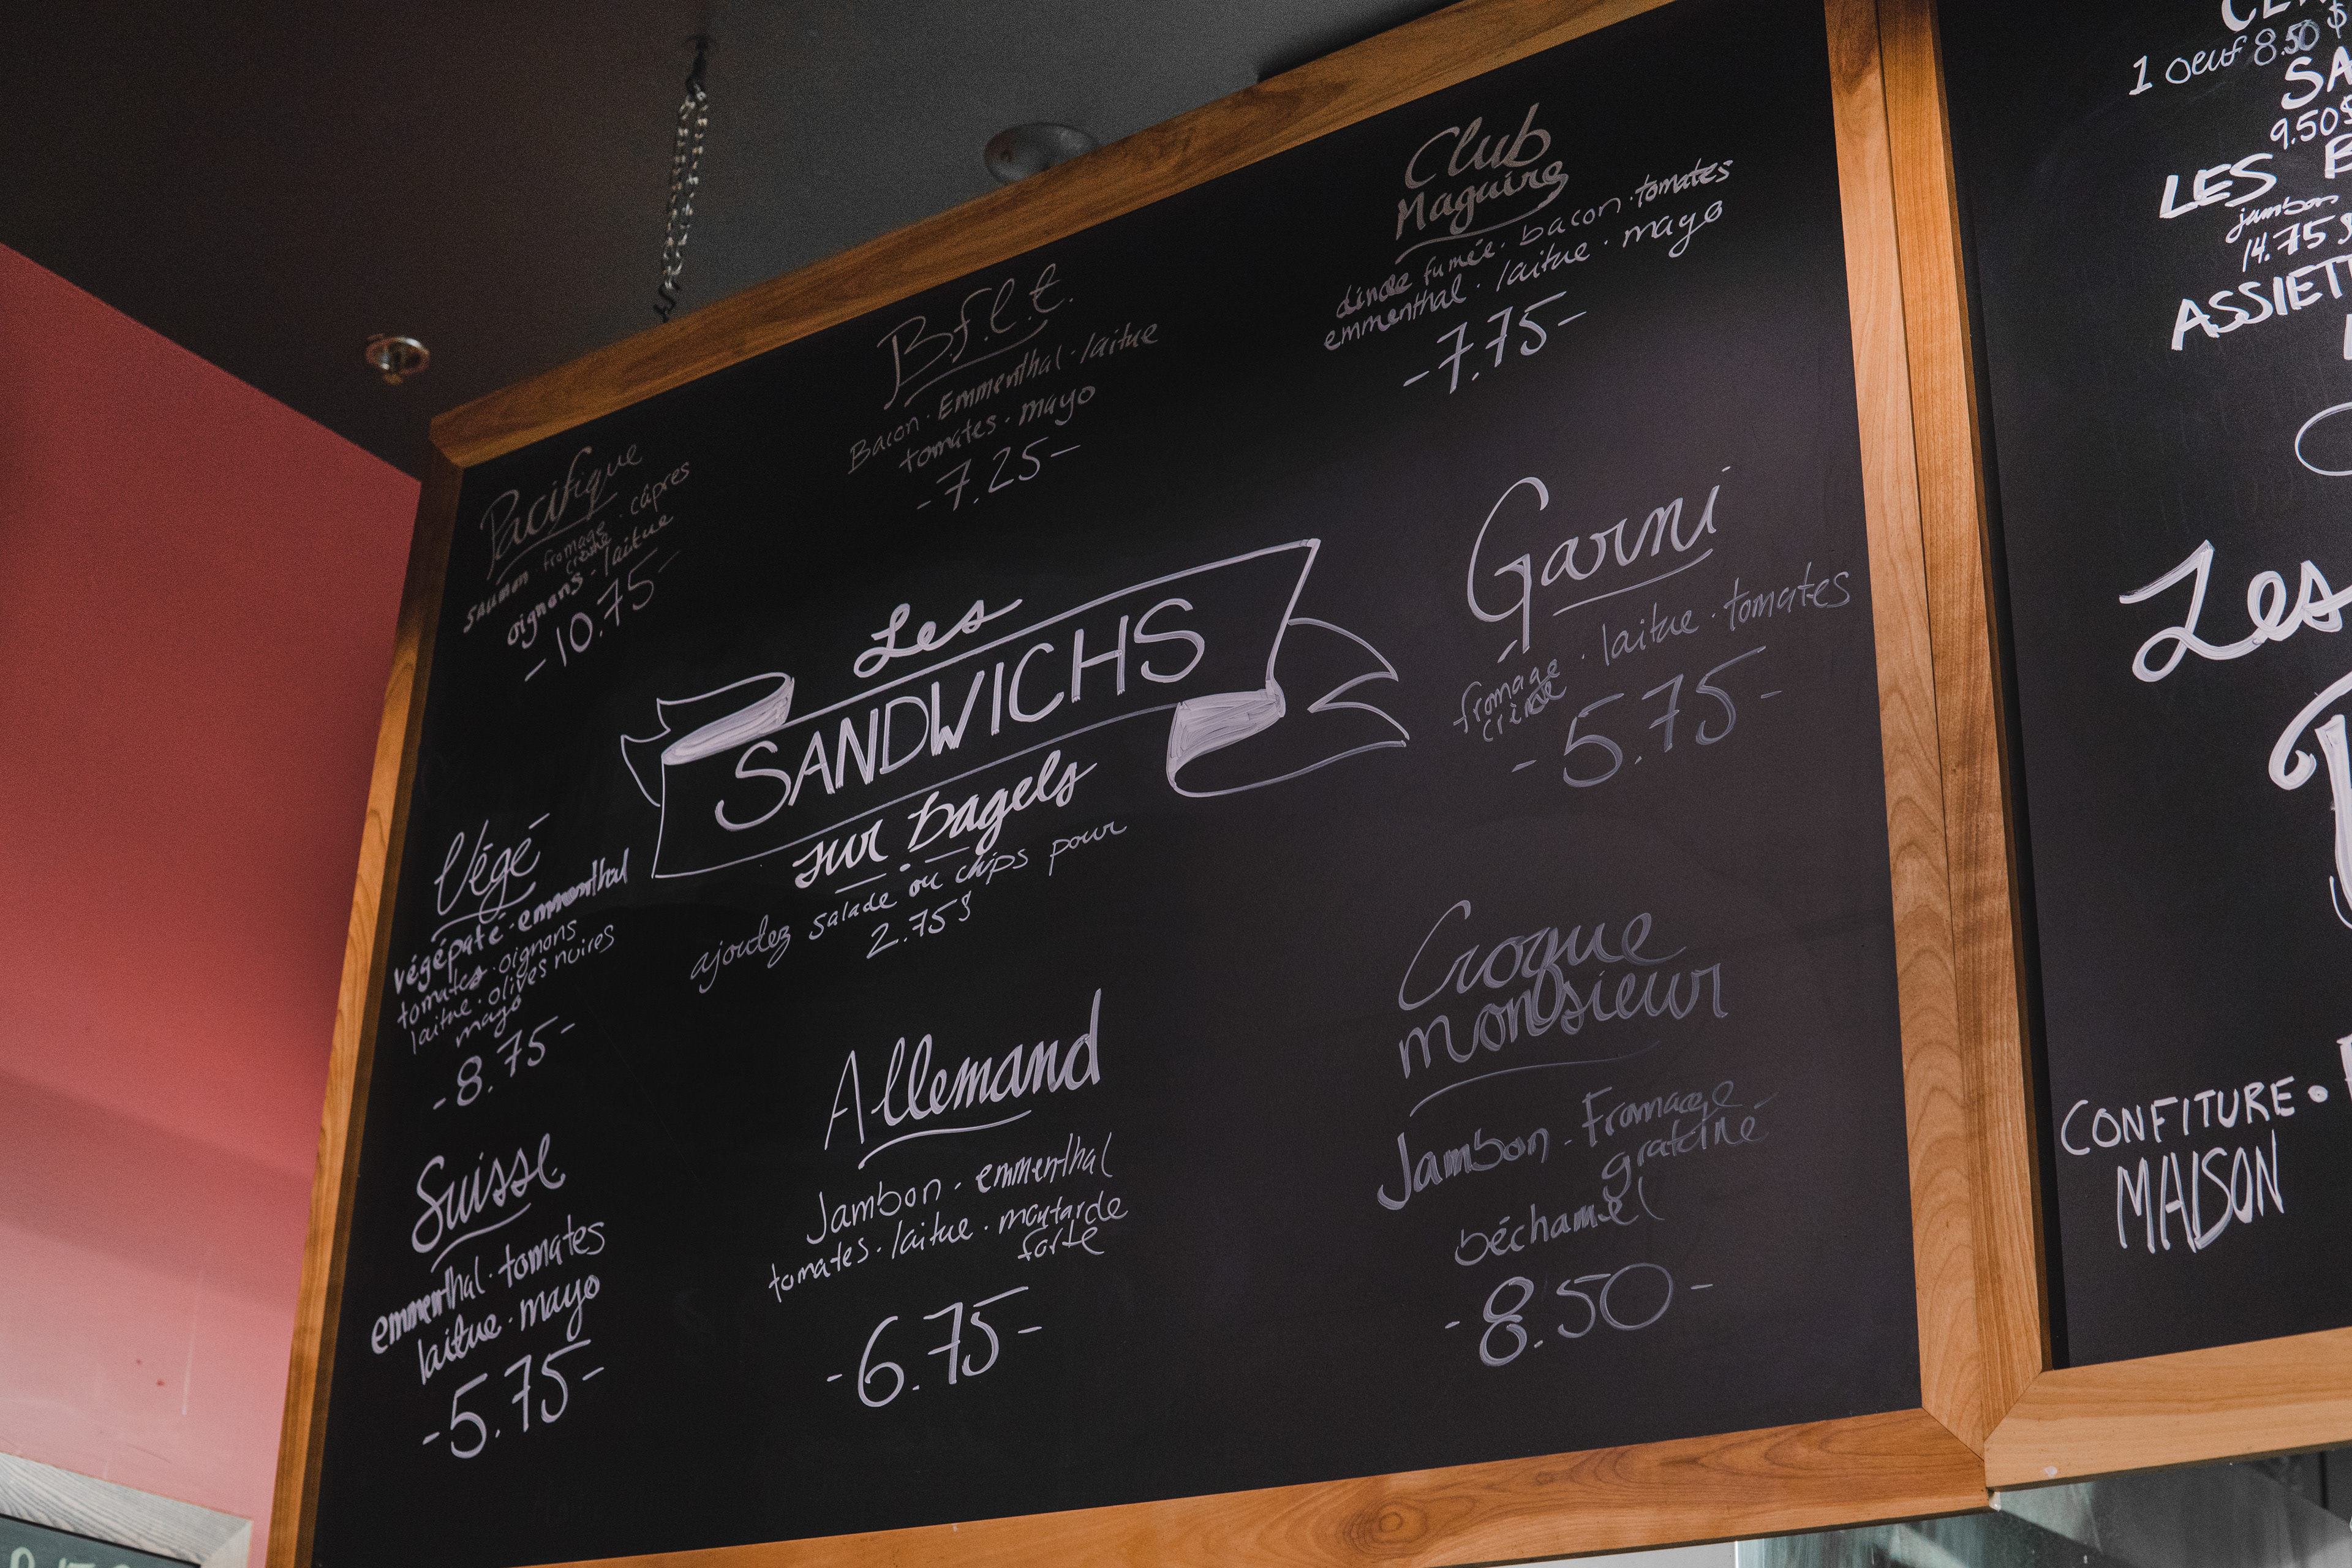 Pacifique
saumon · fromage crème · câpres
oignons · laitue
- 10.75 -
B.f.l.t.
Bacon · Emmenthal · laitue
tomates · mayo
- 7.25 -
Club
Maguire
dinde fumée · bacon · tomates
emmenthal · laitue · mayo
- 7.75 -
Les
SANDWICHS
sur bagels
ajoutez salade ou chips pour
2.75$
Garni
fromage crème · laitue · tomates
- 5.75 -
Végé
végépaté · emmenthal
tomates · oignons
laitue · olives noires
mayo
- 8.75 -
Suisse
emmenthal · tomates
laitue · mayo
- 5.75 -
Allemand
Jambon - emmenthal
tomates · laitue · moutarde
forte
- 6.75 -
Croque
monsieur
Jambon - Fromage
gratiné -
béchamel
- 8.50 -
1 oeuf 8.50$
SA
9.50$
LES
jambon
14.75$
ASSIET
Les
CONFITURE •
MAISON